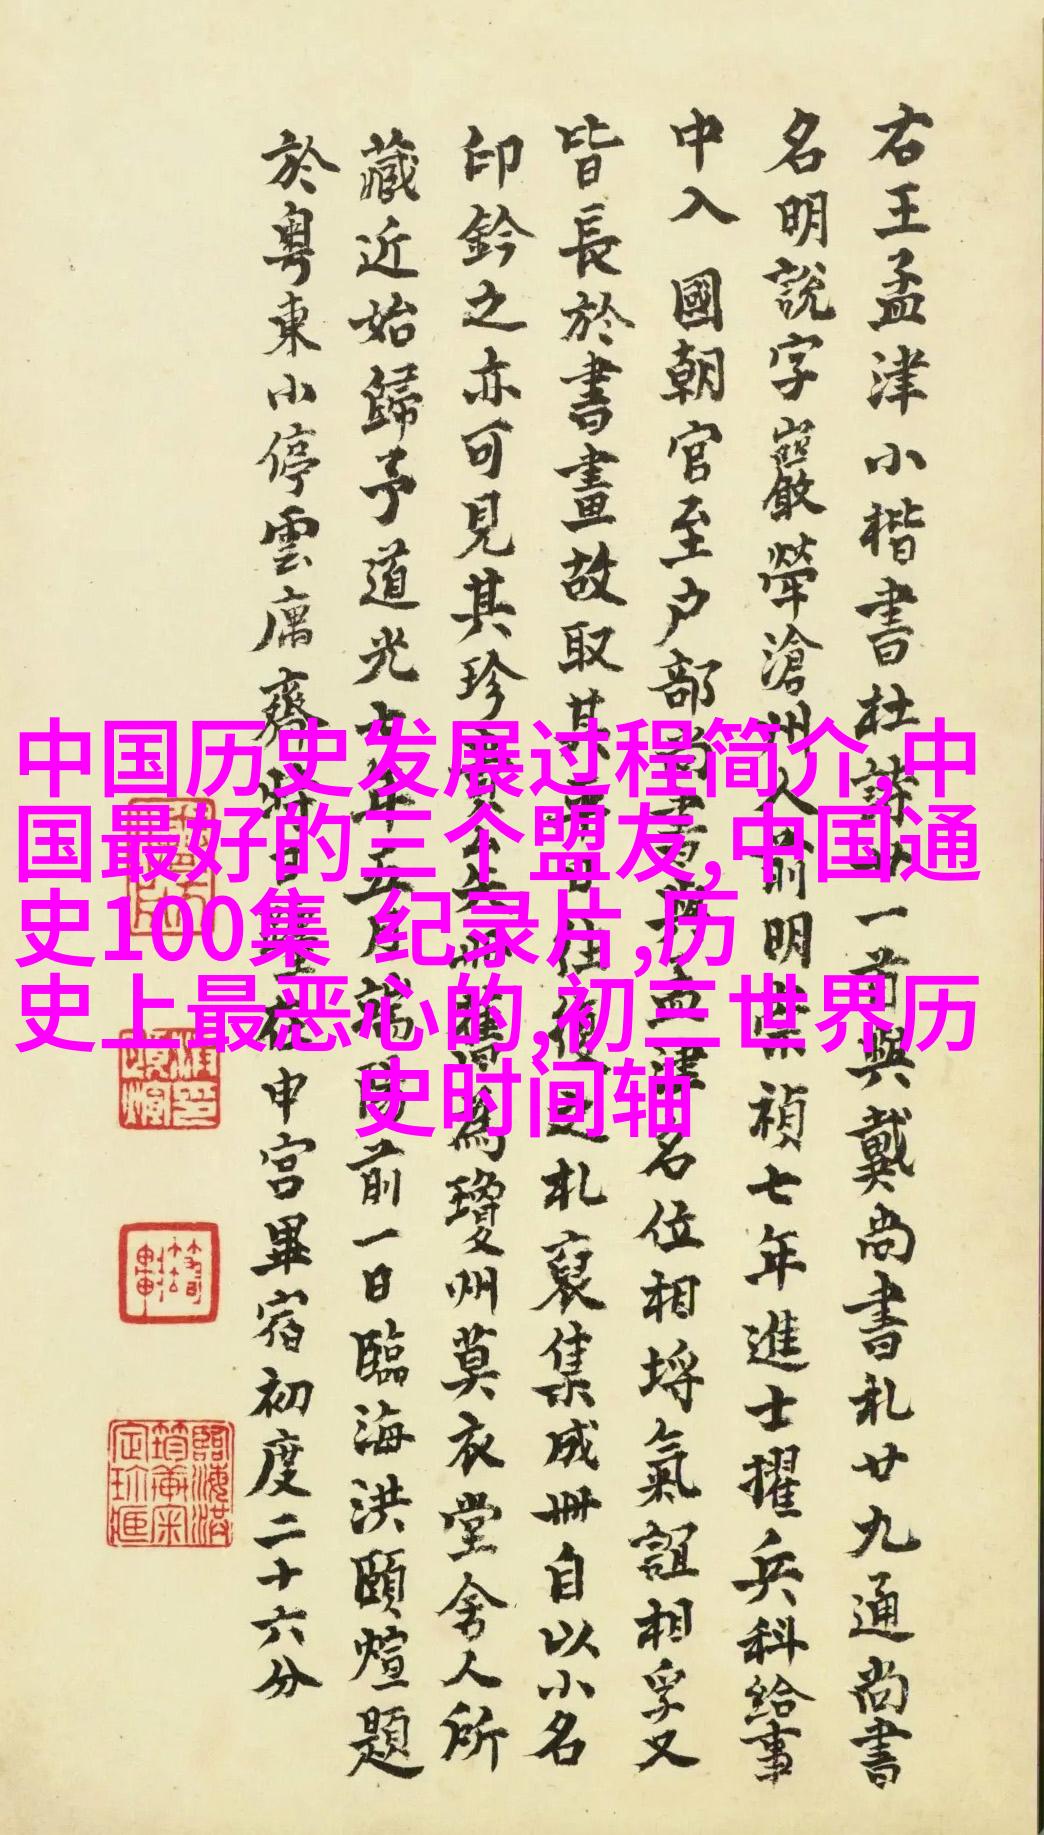 右王孟津小楷書杜詩一首與戴尚書札廿九通尚書
名明說字巖犖滄州人前明崇禎七年進士擢兵科給事
中入國朝官至户部尚書與孟津名位相埒氣誼相孚又
皆長於書畫故取其往復之札裒集成冊自以小名
印鈐之亦可見其珍為瓊州莫衣堂舍人所
藏近始歸予道光年五月端陽前一日臨海洪頤煊題
於粵東小停雲庽齋時日在申宮畢宿初度二十六分
中国历史发展过程简介,中
国最好的三个盟友,中国通
史100集 纪录片,历
史上最恶心的,初三世界历
史时间轴